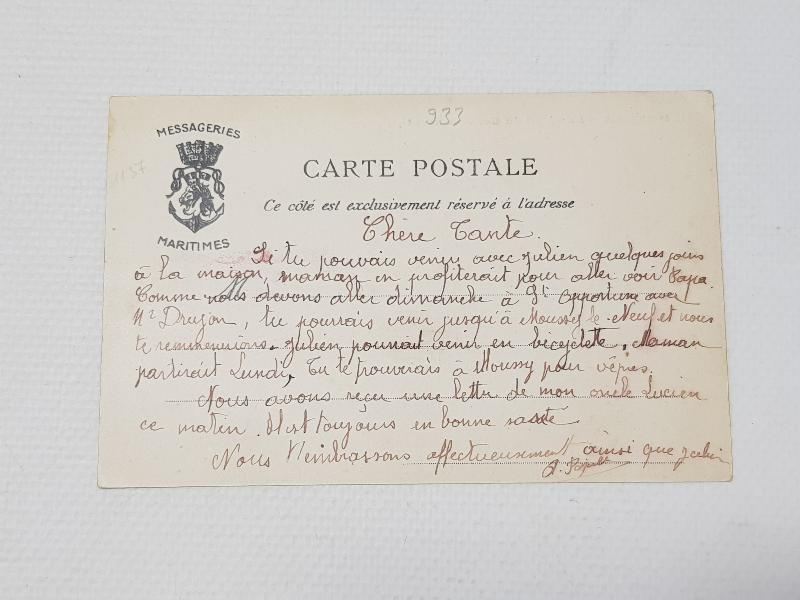 933
1137
MESSAGERIES
MARITIMES
CARTE POSTALE
Ce côté est exclusivement réservé à l'adresse
Chère Tante.
Si tu pouvais venir avec Julien quelques jours
à la maison, maman en profiterait pour aller voir Papa.
Comme nous devons aller dimanche à St Opportune avec
Mr Druzon, tu pourrais venir jusqu'à Moussy le Neuf et nous
te remmenerions. Julien pourrait venir en bicyclette. Maman
partirait Lundi, Tu te trouverais à Moussy pour vêpres.
Nous avons reçu une lettre de mon oncle Lucien
ce matin. Il est toujours en bonne santé
Nous t'embrassons affectueusement ainsi que Julien